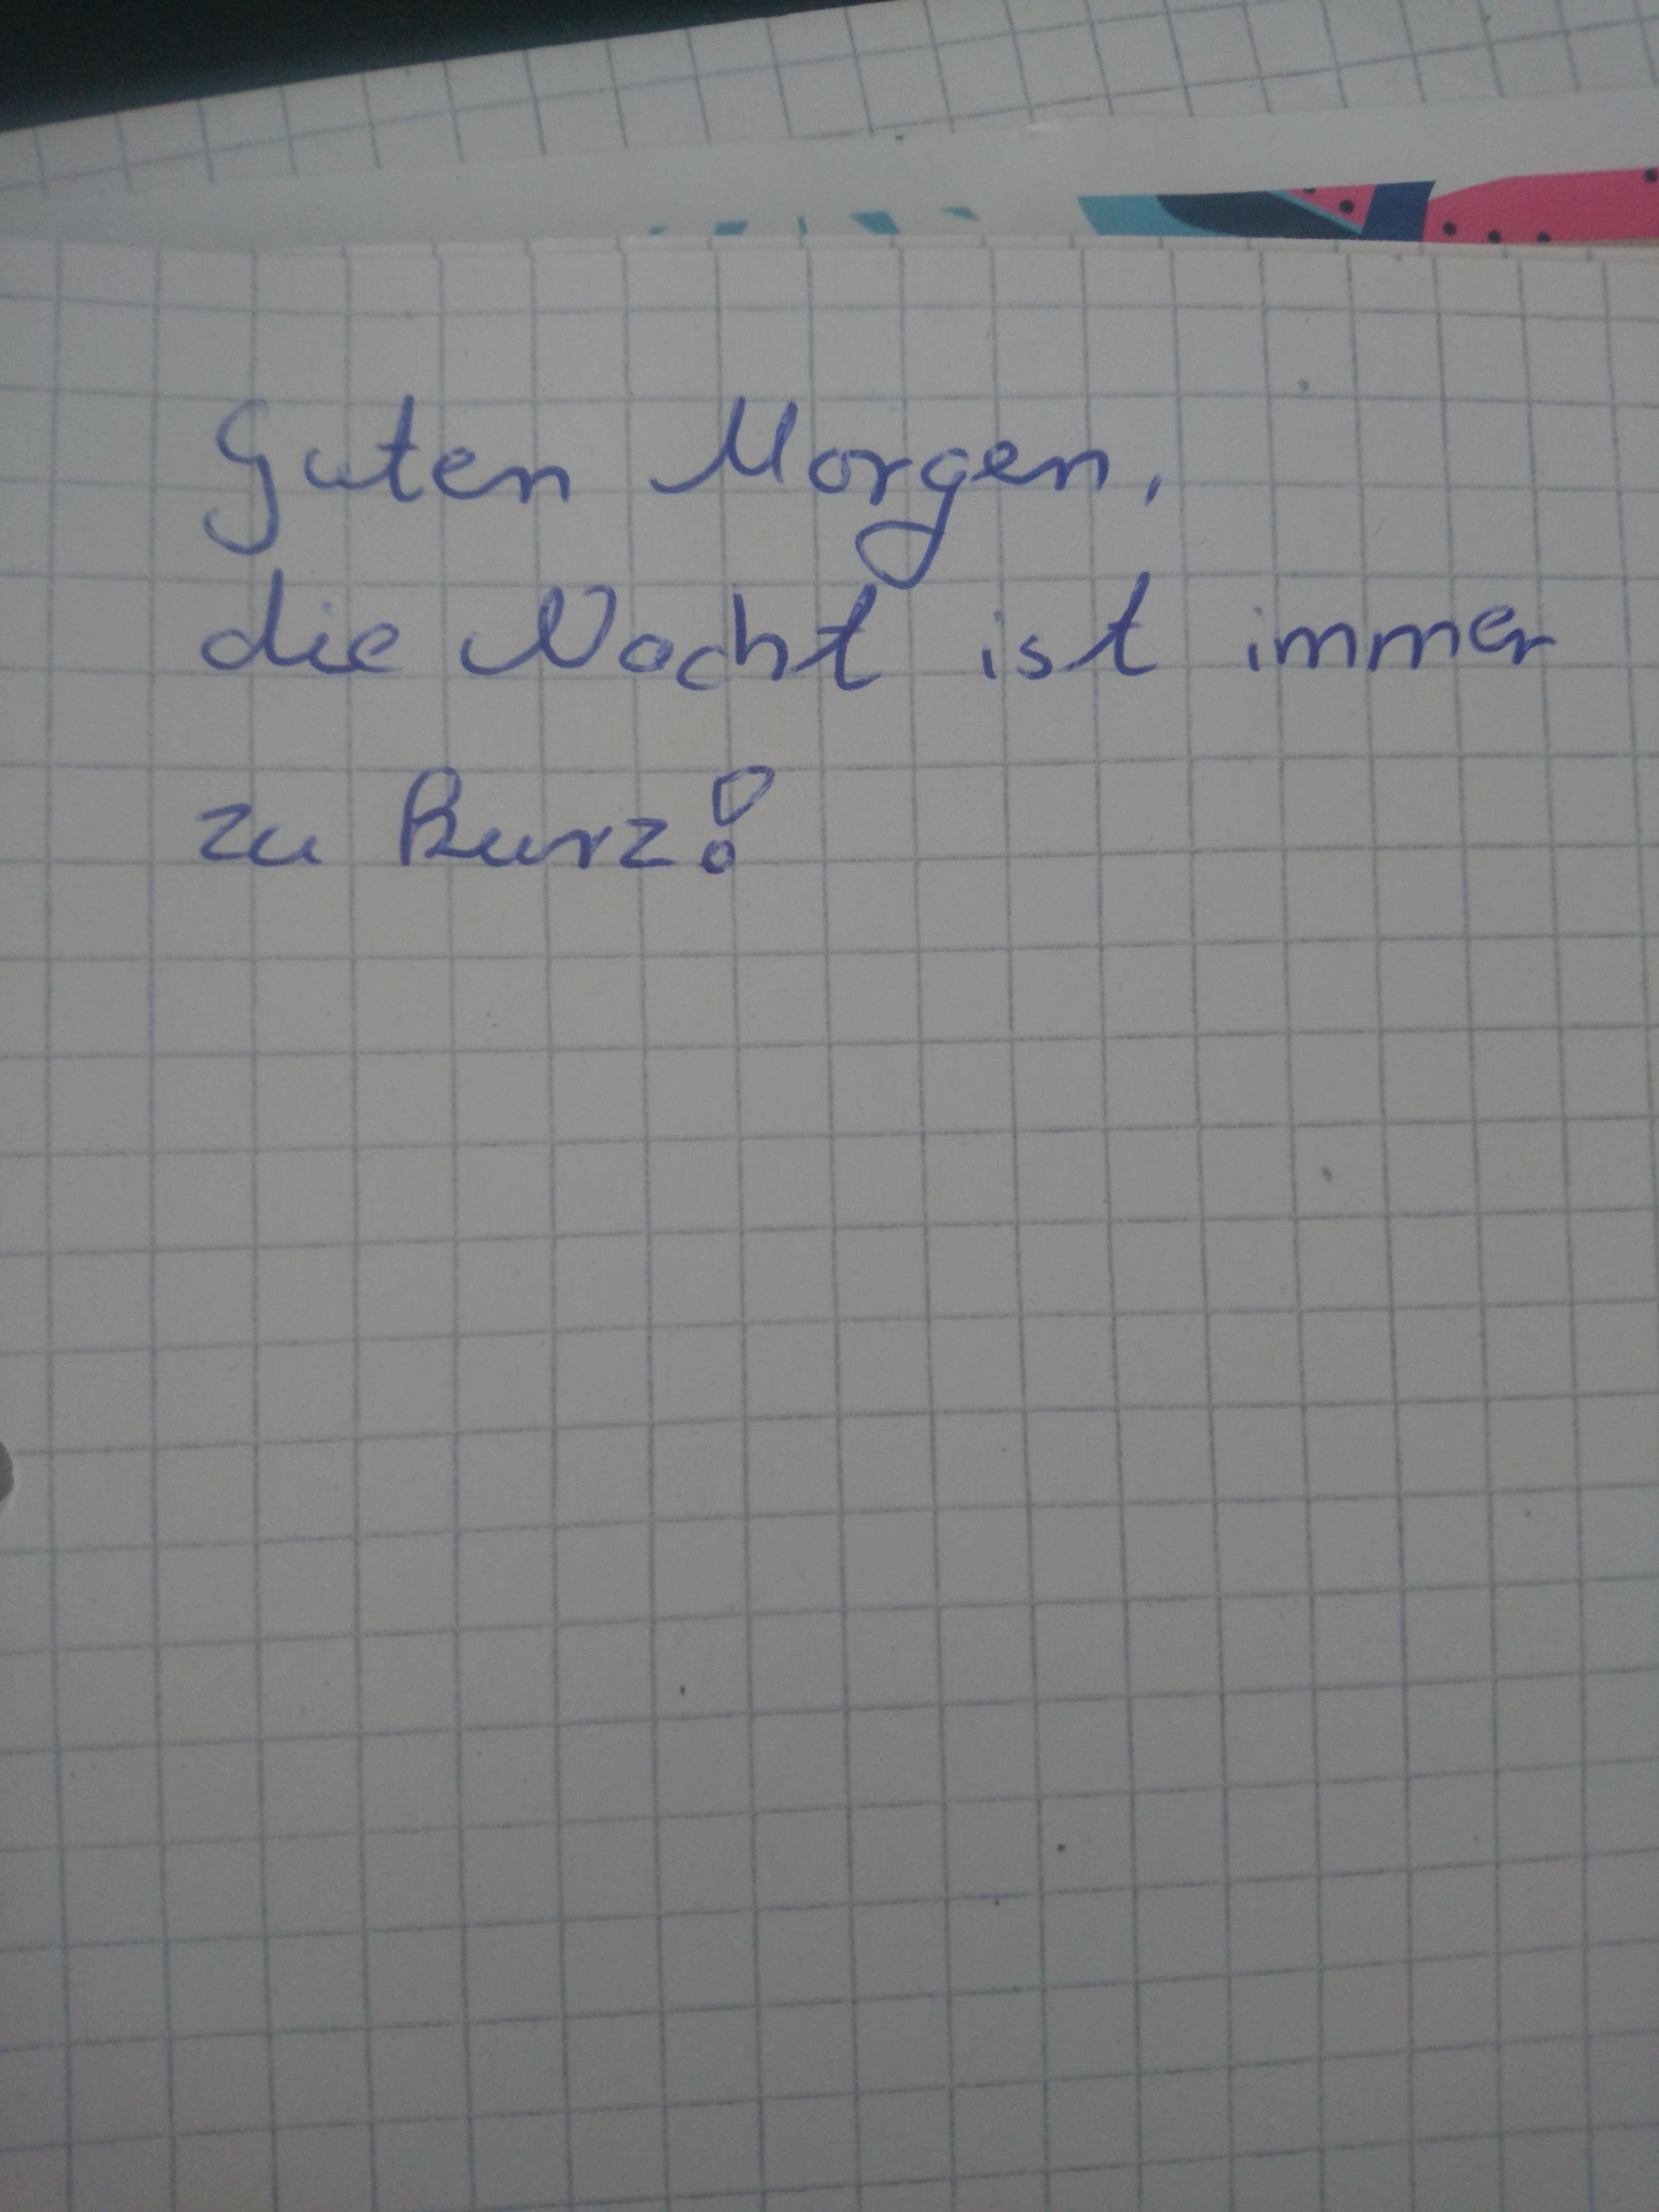 Guten Morgen,
die Nacht ist immer
zu kurz!